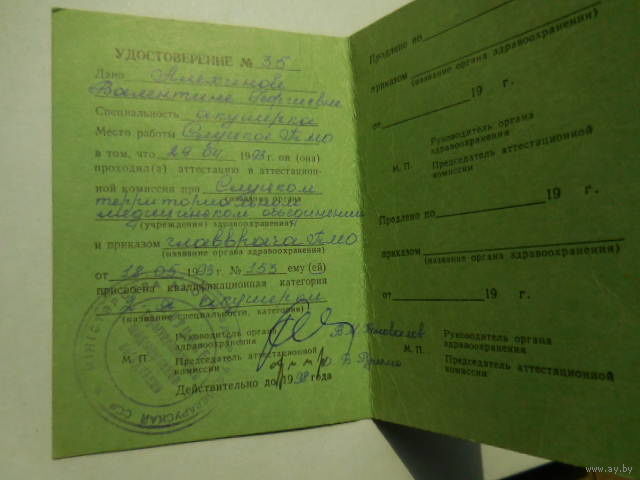 УДОСТОВЕРЕНИЕ № 35
Дано
Валентине Георгиевне
Специальность акушерка
Место работы Слуцкое ТМО
в том, что 29 04 1993г. он (она)
проходил(а) аттестацию в аттестацион-
ной комиссии при Слуцком
(название органа
территориальном
медицинском объединении
(учреждения) здравоохранения)
и приказом главврача ТМО
(название органа здравоохранения)
от 18 05 1993г. № 153 ему (ей)
присвоена квалификационная категория
акушерки
(название специальности, категории)
Руководитель органа
здравоохранения
М. П. Председатель аттестационной
комиссии
Действительно до 1998 года
БЕЛАРУСКАЯ ССР
Продлено по
приказом
(название органа здравоохранения)
от 19 г.
Руководитель органа
здравоохранения
М. П. Председатель аттестационной
комиссии
Продлено по
приказом
(название органа здравоохранения)
от 19 г.
Руководитель органа
здравоохранения
М. П.
Председатель аттестационной
комиссии
www.ay.by